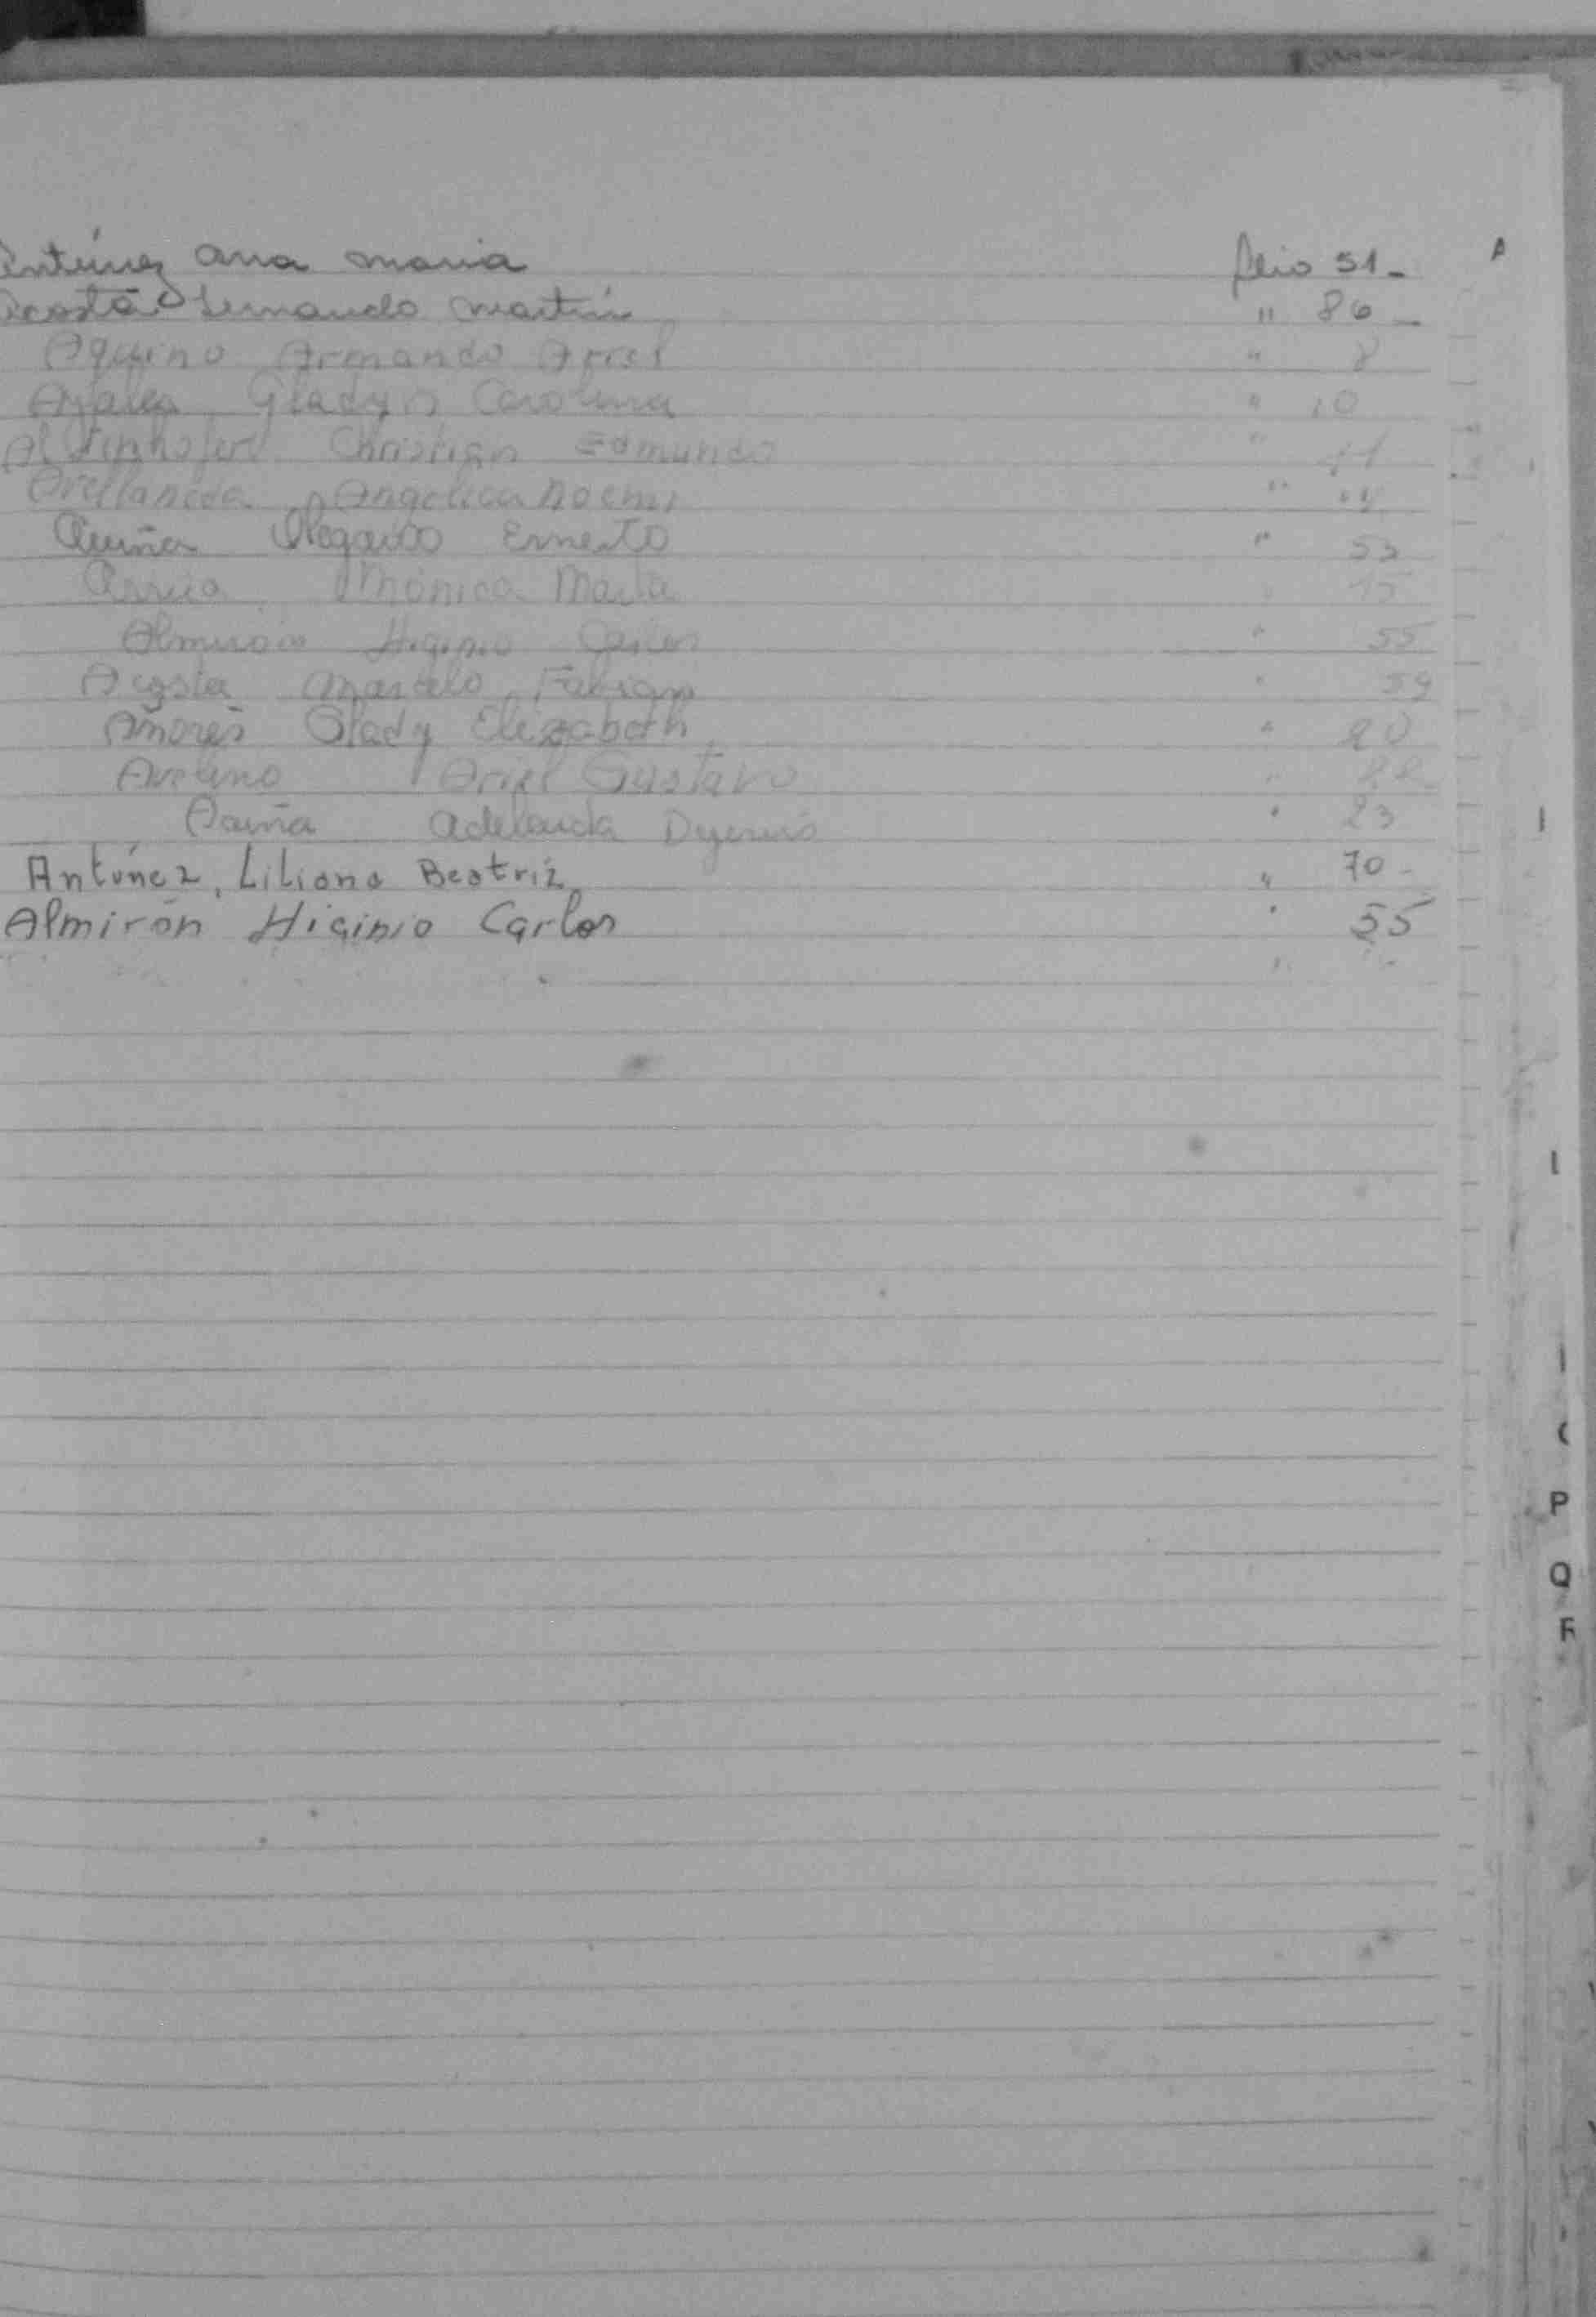 Antúnez Ana Maria folio 51-
Acosta Fernando Martín " 86-
Aquino Armando Ariel " 8
Ayala Gladys Carolina " 10
Christian Edmundo " 11
Avellaneda Angelica Noemi "
Acuña Olegario Ernesto " 53
Mónica Marta 15
Almirón Higinio Carlos " 55
Acosta Marcelo Fabian " 59
Gladys Elizabeth " 20
Avelino Ariel Gustavo "
Acuña Adelaida " 23
Antúnez, Liliana Beatriz " 70-
Almirón Higinio Carlos " 55
A
P
Q
R